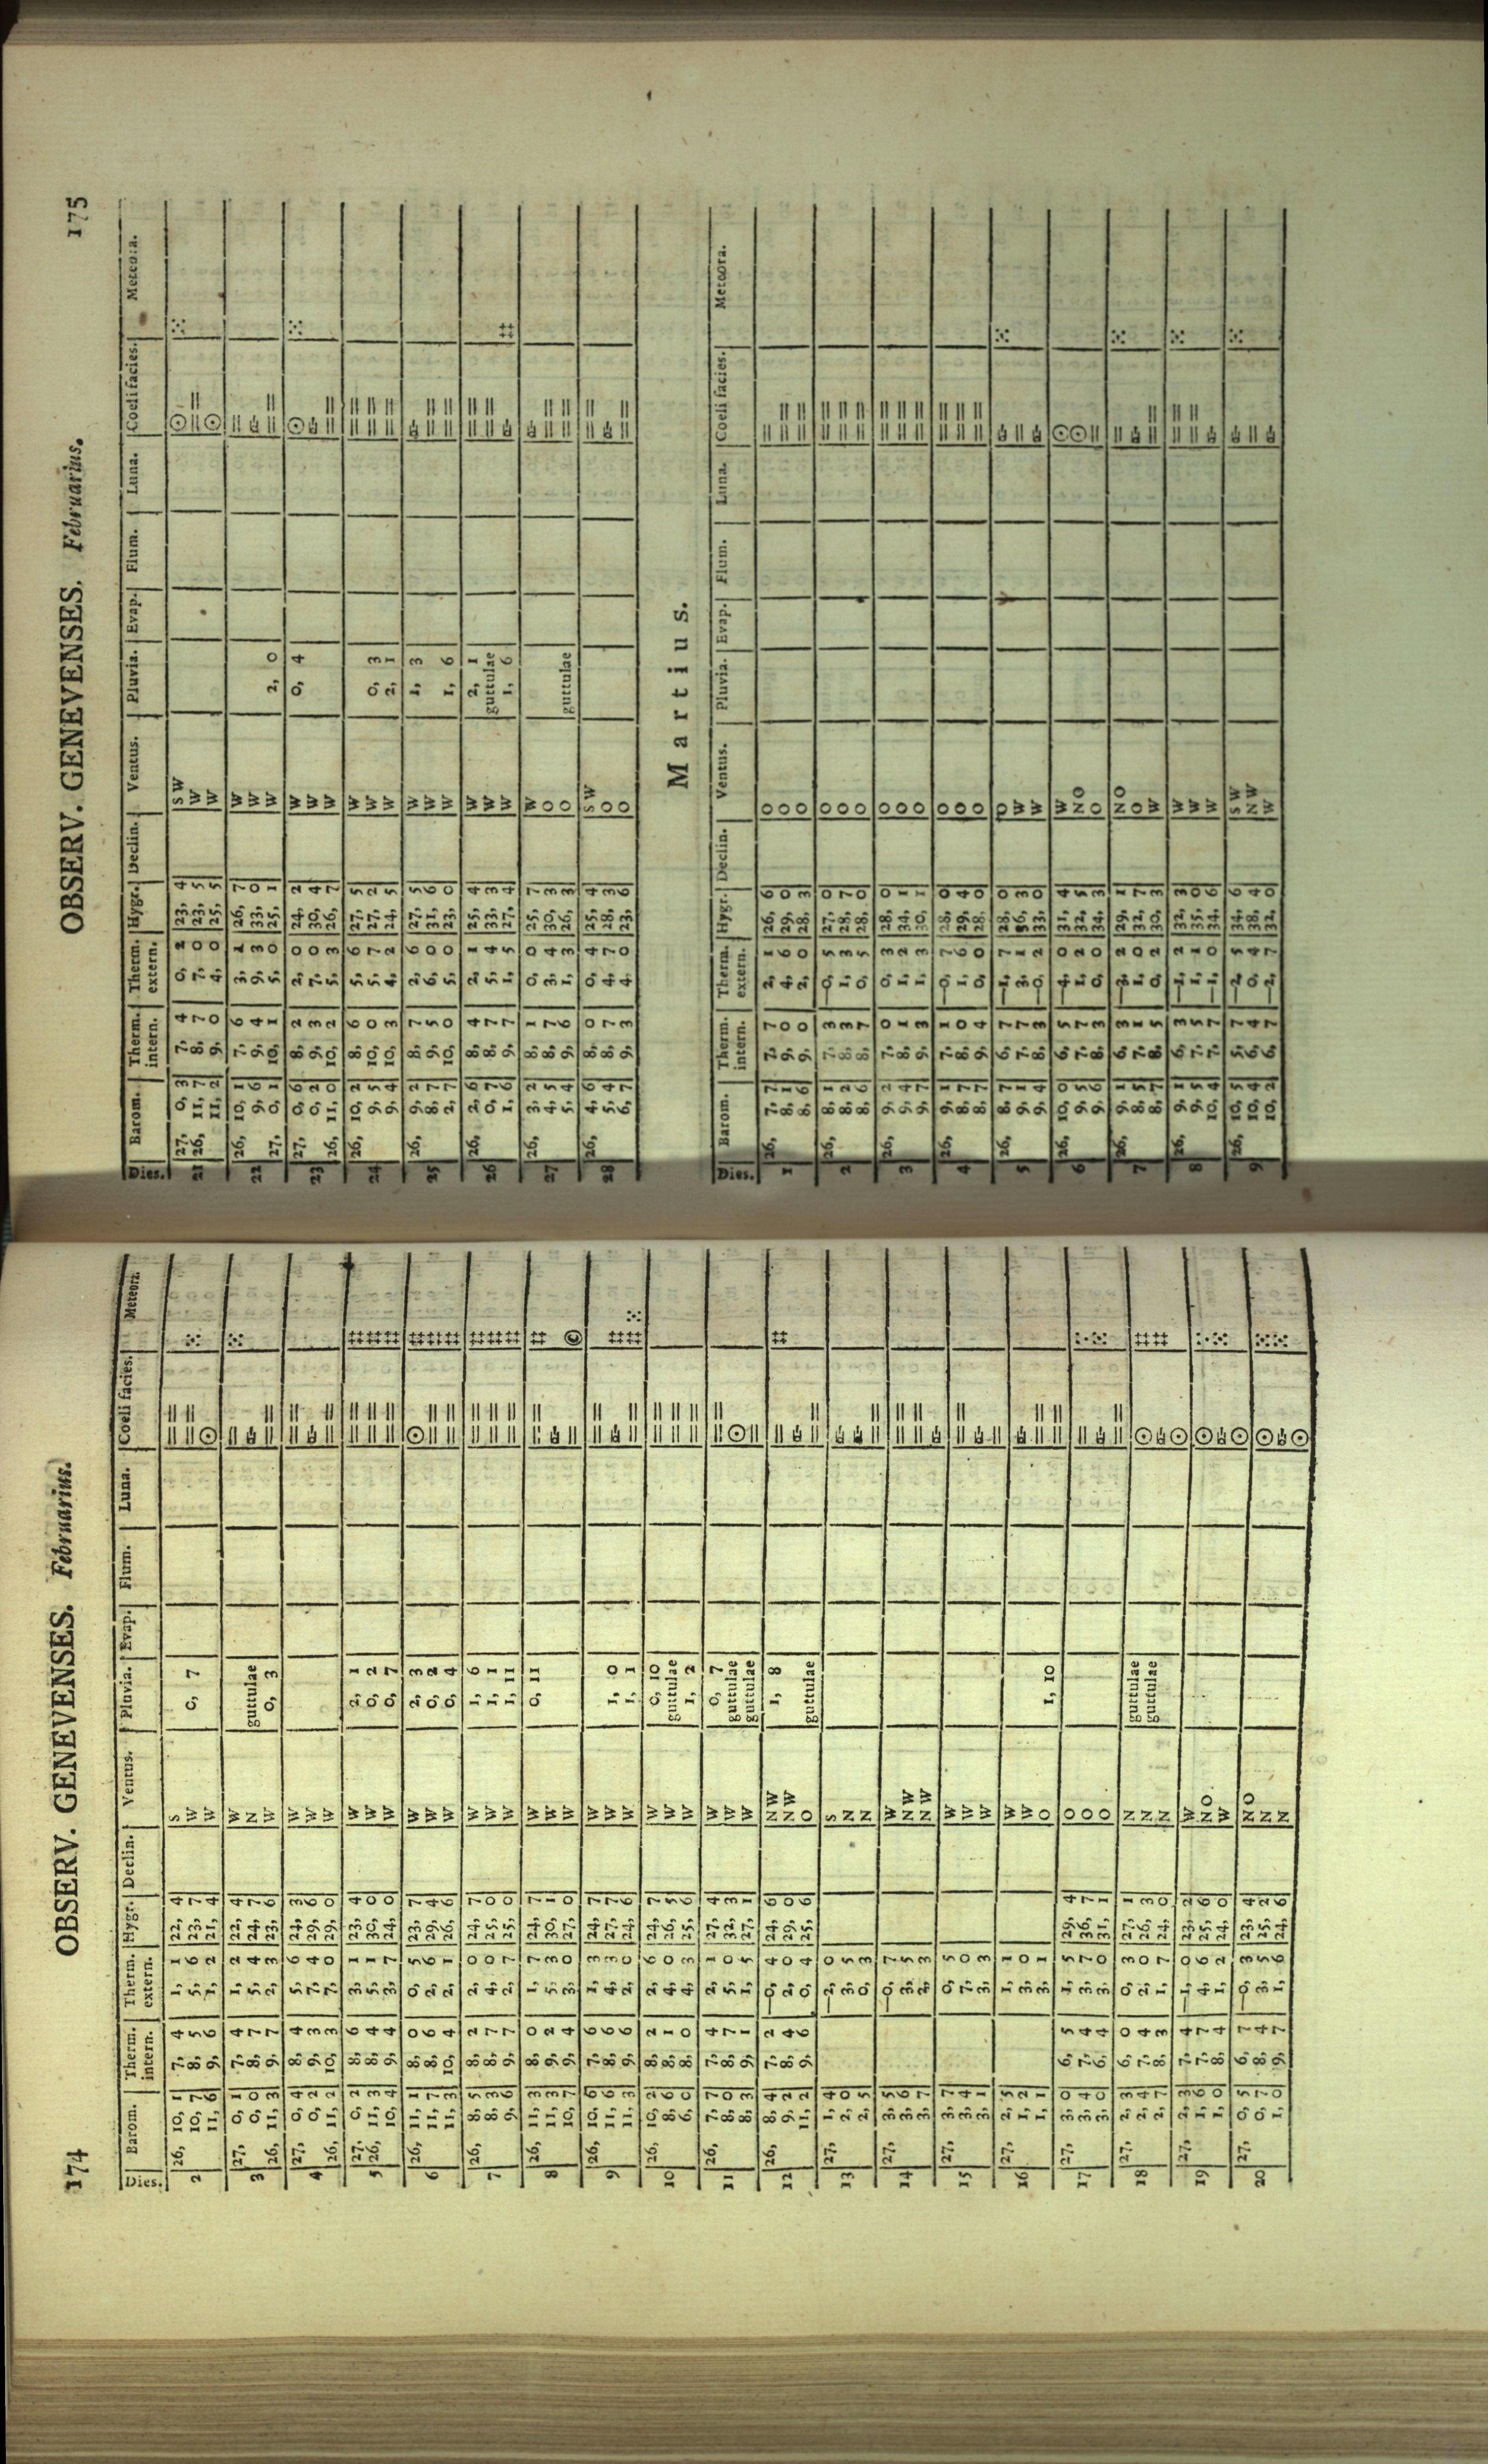 174
OBSERV. GENEVENSES. Februarius.
Dies. Barom. Therm. intern. Therm. extern. Hygr. Declin. Ventus. Pluvia. Evap. Flum. Luna. Coeli facies. Meteora.
26, 10, 1 7, 4 1, 1 22, 4 S
2 10, 7 8, 5 5, 6 23, 7 W 0, 7
11, 6 9, 6 1, 2 21, 4 W
27, 0, 1 7, 4 1, 2 22, 4 W
3 0, 0 8, 7 5, 4 24, 7 N guttulae
26, 11, 3 9, 7 2, 3 23, 6 W 0, 3
27, 0, 4 8, 4 5, 6 24, 3 W
4 0, 2 9, 3 7, 4 29, 6 W
26, 11, 2 10, 3 7, 0 29, 0 W
27, 0, 2 8, 6 3, 1 23, 4 W 2, 1
5 26, 11, 3 8, 4 5, 1 30, 0 W 0, 2
10, 4 9, 4 3, 7 24, 0 W 0, 7
26, 11, 1 8, 0 0, 5 23, 7 W 2, 3
6 11, 7 8, 6 2, 6 29, 4 W 0, 2
11, 3 10, 4 2, 1 26, 6 W 0, 4
26, 8, 5 8, 2 2, 0 24, 7 W 1, 6
7 8, 3 8, 7 4, 0 25, 0 W 1, 1
9, 6 9, 7 2, 7 25, 0 W 1, 11
26, 11, 3 8, 0 1, 7 24, 7 W 0, 11
8 11, 3 9, 2 5, 3 30, 1 W
10, 7 9, 4 3, 0 27, 0 W
26, 10, 6 7, 6 1, 3 24, 7 W
9 11, 6 8, 6 4, 3 27, 7 W 1, 0
11, 3 9, 6 2, 0 24, 6 W 1, 1
26, 10, 2 8, 2 2, 6 24, 7 W 0, 10
10 8, 6 8, 1 4, 0 26, 5 W guttulae
6, 0 8, 0 4, 3 25, 6 W 1, 2
26, 7, 7 7, 4 2, 1 27, 4 W 0, 7
11 8, 0 8, 7 5, 0 32, 3 W guttulae
8, 3 9, 1 1, 5 27, 1 W guttulae
26, 8, 4 7, 2 —0, 4 24, 6 NW 1, 8
12 9, 2 8, 4 2, 0 29, 0 NW
11, 2 9, 6 0, 4 25, 6 O guttulae
27, 1, 4 —2, 0 S
13 2, 0 3, 5 N
2, 5 0, 3 N
27, 3, 5 —0, 7 W
14 3, 6 3, 5 NW
3, 7 2, 3 NW
27, 3, 7 0, 5 W
15 3, 4 7, 0 W
3, 1 3, 3 W
27, 2, 5 1, 1 W
16 1, 2 3, 0 W
1, 1 3, 1 O 1, 10
27, 3, 0 6, 5 1, 5 29, 4 O
17 3, 4 7, 4 3, 7 36, 7 O
3, 0 6, 4 3, 0 31, 1 O
27, 2, 3 6, 0 0, 3 27, 1 N guttulae
18 2, 4 7, 4 2, 0 26, 3 N guttulae
2, 7 8, 3 1, 7 24, 0 N
27, 2, 3 7, 4 —1, 0 23, 2 W
19 1, 6 7, 7 4, 6 25, 6 NO
1, 0 8, 4 1, 2 24, 0 W
27, 0, 5 6, 7 —0, 3 23, 4 NO
20 0, 7 8, 4 3, 5 25, 2 N
1, 0 9, 7 1, 6 24, 6 N
OBSERV. GENEVENSES. Februarius. 175
Dies. Barom. Therm. intern. Therm. extern. Hygr. Declin. Ventus. Pluvia. Evap. Flum. Luna. Coeli facies. Meteora.
27, 0, 3 7, 4 0, 2 23, 4 SW
21 26, 11, 7 8, 7 7, 0 23, 5 W
11, 2 9, 0 4, 0 25, 5 W
26, 10, 1 7, 6 3, 1 26, 7 W
22 9, 6 9, 4 9, 3 33, 0 W
27, 0, 1 10, 1 5, 0 25, 1 W 2, 0
27, 0, 6 8, 2 2, 0 24, 2 W 0, 4
23 0, 2 9, 3 7, 0 30, 4 W
26, 11, 0 10, 2 5, 3 26, 7 W
26, 10, 2 8, 6 5, 6 27, 5 W
24 9, 5 10, 0 5, 7 27, 2 W 0, 3
9, 4 10, 3 4, 2 24, 5 W 2, 1
26, 9, 2 8, 7 2, 6 27, 5 W 1, 3
25 8, 7 9, 5 6, 0 31, 6 W
2, 7 10, 0 5, 0 23, 0 W 1, 6
26, 2, 6 8, 4 2, 1 25, 4 W 2, 1
26 0, 7 8, 7 5, 4 33, 3 W guttulae
1, 6 9, 7 1, 5 27, 4 W 1, 6
26, 3, 2 8, 1 0, 0 25, 7 W
27 4, 5 8, 7 3, 4 30, 3 O
5, 4 9, 6 1, 3 26, 3 O guttulae
26, 4, 6 8, 0 0, 4 25, 4 SW
28 5, 4 8, 7 4, 7 28, 3 O
6, 7 9, 3 4, 0 23, 6 O
Martius.
Dies. Barom. Therm. intern. Therm. extern. Hygr. Declin. Ventus. Pluvia. Evap. Flum. Luna. Coeli facies. Meteora.
26, 7, 7 7, 7 2, 1 26, 6 O
1 8, 1 9, 0 4, 6 29, 0 O
8, 6 9, 0 2, 0 28, 3 O
26, 8, 1 7, 3 —0, 5 27, 0 O
2 8, 2 8, 3 1, 3 28, 7 O
8, 6 8, 7 0, 5 28, 0 O
26, 9, 2 7, 0 0, 3 28, 0 O
3 9, 4 8, 1 1, 2 34, 1 O
9, 7 9, 3 1, 3 30, 1 O
26, 9, 1 7, 1 —0, 7 28, 0 O
4 8, 7 8, 0 1, 6 29, 4 O
8, 7 9, 4 0, 0 28, 0 O
26, 8, 7 6, 7 —1, 7 28, 0 O
5 9, 1 7, 7 3, 1 36, 3 W
9, 4 8, 3 —0, 2 33, 0 W
26, 10, 0 6, 5 —4, 0 31, 4 W
6 9, 5 7, 7 1, 2 32, 5 NO
9, 6 8, 3 0, 0 34, 3 O
26, 9, 1 6, 3 —3, 2 29, 1 NO
7 8, 5 7, 1 1, 0 32, 7 O
8, 7 8, 5 0, 2 30, 3 W
26, 9, 1 6, 3 —1, 2 32, 3 W
8 9, 5 7, 5 1, 1 35, 0 W
10, 4 7, 7 —1, 0 34, 6 W
26, 10, 5 5, 7 —2, 5 34, 6 SW
9 10, 4 6, 4 0, 4 38, 4 NW
10, 2 6, 7 —2, 7 32, 0 W